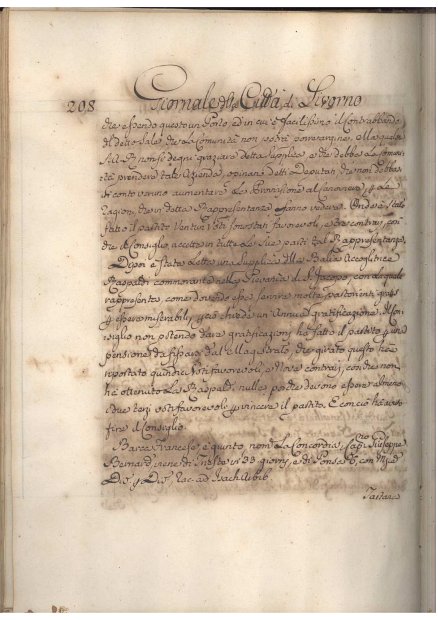 208 Giornale della Città di Livorno
che essendo questo un Porto, ed in cui è facilissimo il Contrabbando
di detto Sale, che la Comunità non potrà
S.A.R. non si degni graziare detta Supplica, e che debba la Comuni
tà prendere tale Azienda, opinano detti Deputati, che non debbasi
in conto veruno aumentare la Provvisione al
cagioni, che in detta Rappresentanza si fanno vedere. Onde è stato
fatto il partito Ventun Voti sono stati favorevoli, e tre contrari, sic
che il Consiglio accetta in tutte le sue parti tal Rappresentanza.
Dopoi è stata letta una Supplica della Balia Accoglitrice
Raspaldi commorante nella Pievania di S. Jacopo, con la quale
rappresenta, come dovendo essa servire molte partorienti gratis
p essere miserabili, chiede un Annua gratificazione. Il Con
siglio non potendo dare gratificazioni ha fatto il partito p una
pensione da fissarsi dal Magistrato, che girato questo ha
riportato quindici Voti favorevoli, e Nove contrari, sicche non
ha ottenuto la Raspaldi nulla, poiche devono essere almeno
due terzi voti favorevoli p vincere il partito. E con ciò ha avuto
fine il Consiglio.
Barca Francese, è giunto, nom.ª La Concordia, Cap.no Giuseppe
Bernard, viene di Trieste in 33 giorni, e di Ponsa 6, con
Rac. ad Isach
Tartana